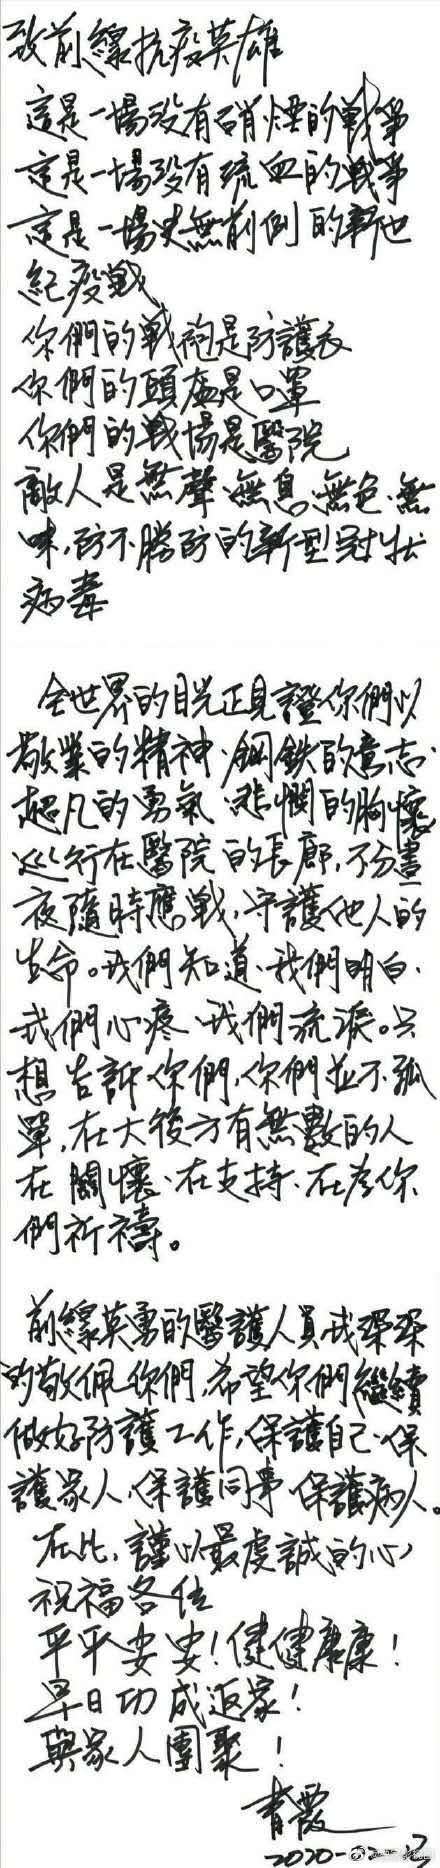 致前線抗疫英雄
這是一場沒有硝煙的戰爭
這是一場沒有流血的戰爭
這是一場史無前例的新世
紀疫戰
你們的戰袍是防護衣
你們的頭盔是口罩
你們的戰場是醫院
敵人是無聲、無息、無色、無
味,防不勝防的新型冠狀
病毒
全世界的目光正見證你們以
敬業的精神、鋼鐵的意志、
超凡的勇氣、悲憫的胸懷
巡行在醫院的長廊,不分晝
夜隨時應戰,守護他人的
生命。我們知道、我們明白、
我們心疼、我們流淚。只
想告訴你們,你們並不孤
單,在大後方有無數的人
在關懷、在支持、在為你
們祈禱。
前線英勇的醫護人員我深深
的敬佩你們,希望你們繼續
做好防護工作,保護自己、保
護家人、保護同事、保護病人。
在此,謹以最虔誠的心
祝福各位
平平安安!健健康康!
早日功成返家!
與家人團聚!
青霞
2020-02-